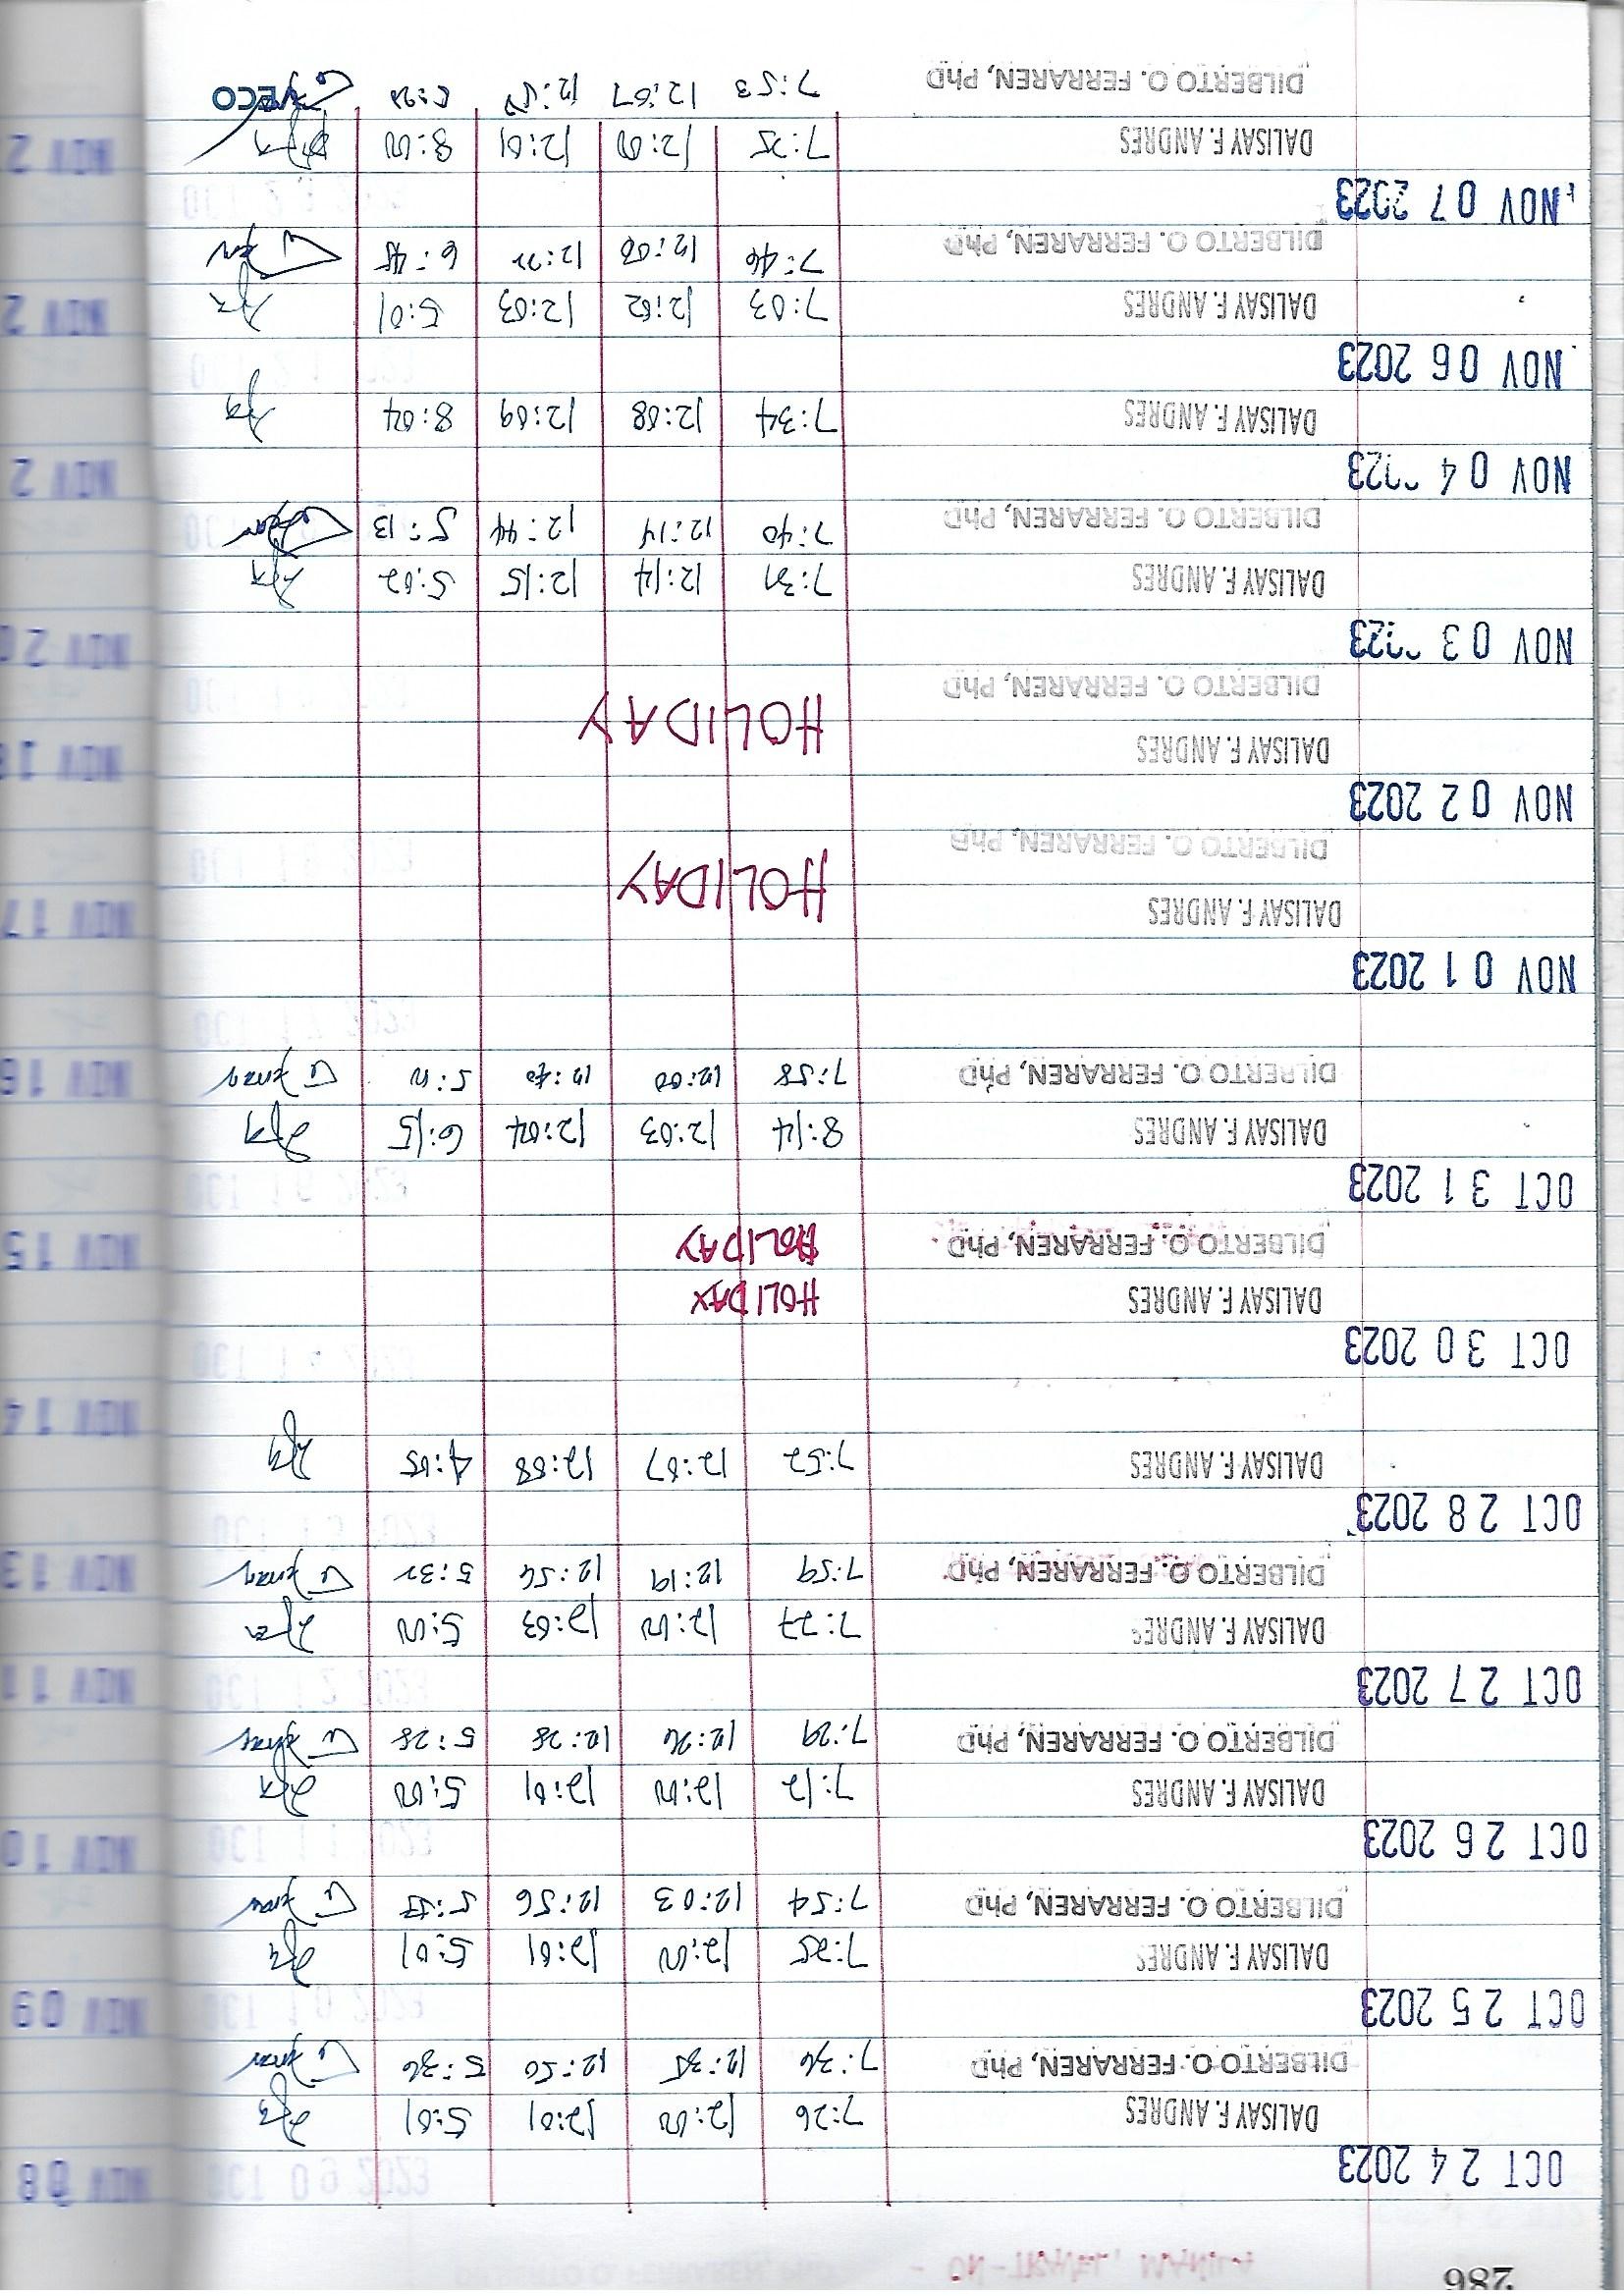 286
OCT 24 2023
DALISAY F. ANDRES 7:26 12:00 12:01 5:01
DILBERTO O. FERRAREN, PhD 7:36 12:35 12:50 5:36
OCT 25 2023
DALISAY F. ANDRES 7:25 12:00 12:01 5:01
DILBERTO O. FERRAREN, PhD 7:54 12:03 12:56
OCT 26 2023
DALISAY F. ANDRES 7:12 12:00 12:01 5:00
DILBERTO O. FERRAREN, PhD 7:29 12:26 12:28 5:28
OCT 27 2023
DALISAY F. ANDRES 7:27 12:00 12:03 5:00
DILBERTO O. FERRAREN, PhD 7:59 12:19 12:54 5:32
OCT 28 2023
DALISAY F. ANDRES 7:52 12:07 12:08 4:05
OCT 30 2023
DALISAY F. ANDRES HOLIDAY
DILBERTO O. FERRAREN, PhD HOLIDAY
OCT 31 2023
DALISAY F. ANDRES 8:14 12:03 12:04 6:15
DILBERTO O. FERRAREN, PhD 7:58 12:00 12:40
NOV 01 2023
DALISAY F. ANDRES
HOLIDAY
DILBERTO O. FERRAREN, PhD
NOV 02 2023
DALISAY F. ANDRES
HOLIDAY
DILBERTO O. FERRAREN, PhD
NOV 03 2023
DALISAY F. ANDRES 7:31 12:14 12:15 5:02
DILBERTO O. FERRAREN, PhD 7:40 12:14 12:44 5:13
NOV 04 2023
DALISAY F. ANDRES 7:34 12:08 12:09 8:04
NOV 06 2023
DALISAY F. ANDRES 7:03 12:02 12:03 5:01
DILBERTO O. FERRAREN, PhD 7:46 12:00 12:22 6:45
NOV 07 2023
DALISAY F. ANDRES 7:25 12:00 12:01 8:00
DILBERTO O. FERRAREN, PhD 7:53 12:07
VECO
NOV 09
NOV 10
NOV 11
NOV 13
NOV 14
NOV 15
NOV 16
NOV 17